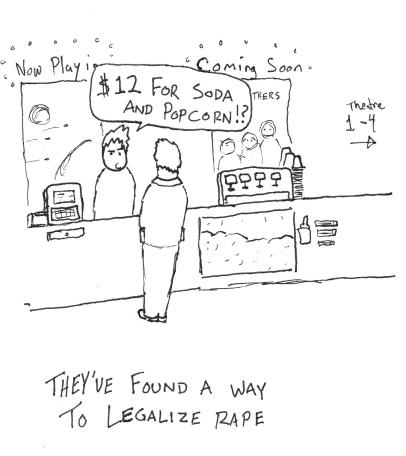 Now Playin
Coming Soon
$12 FOR SODA
AND POPCORN!?
THERS
Theatre
1-4
THEY'VE FOUND A WAY
TO LEGALIZE RAPE